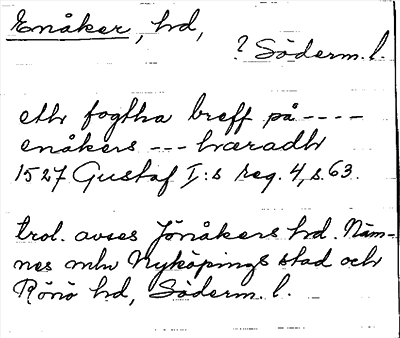 Enåker, hd,
? Söderm. l.
eth fogtha breff på ----
enåkers --- hæradh
1527 Gustaf I:s reg. 4, s. 63.
trol. avses Jönåkers hd. Näm-
nes mln Nyköpings stad och
Rönö hd, Söderm. l.